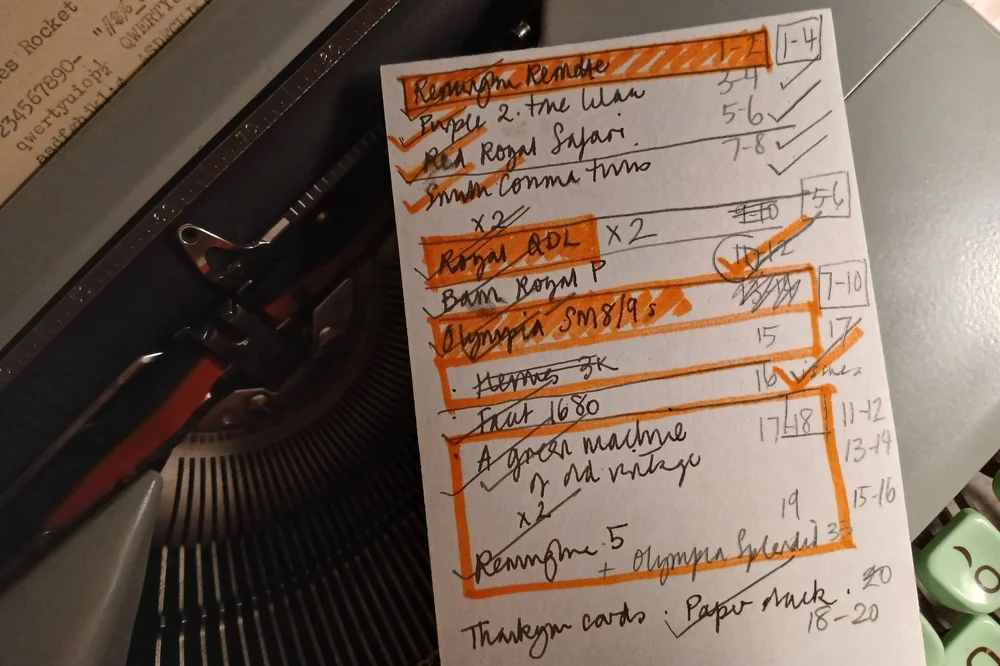 es Rocket
234567890-
qwertyuiop½
"#$%_
QWERTY
Remington Remette 1-2 1-4
Purple 2. the lilac 3-4
Red Royal Safari. 5-6
Smith Corona twins 7-8
x2 9-10 5-6
Royal QDL x2 11-12
Bam Royal P
Olympia SM8/9s 7-10
15 17
Hermes 3K
Facit 1680 16
17-18 11-12
A green machine 13-14
of old vintage
x2 19 15-16
Remington 5
+ Olympia Splendid 33
Thankyou cards : Paper stack. 20
18-20